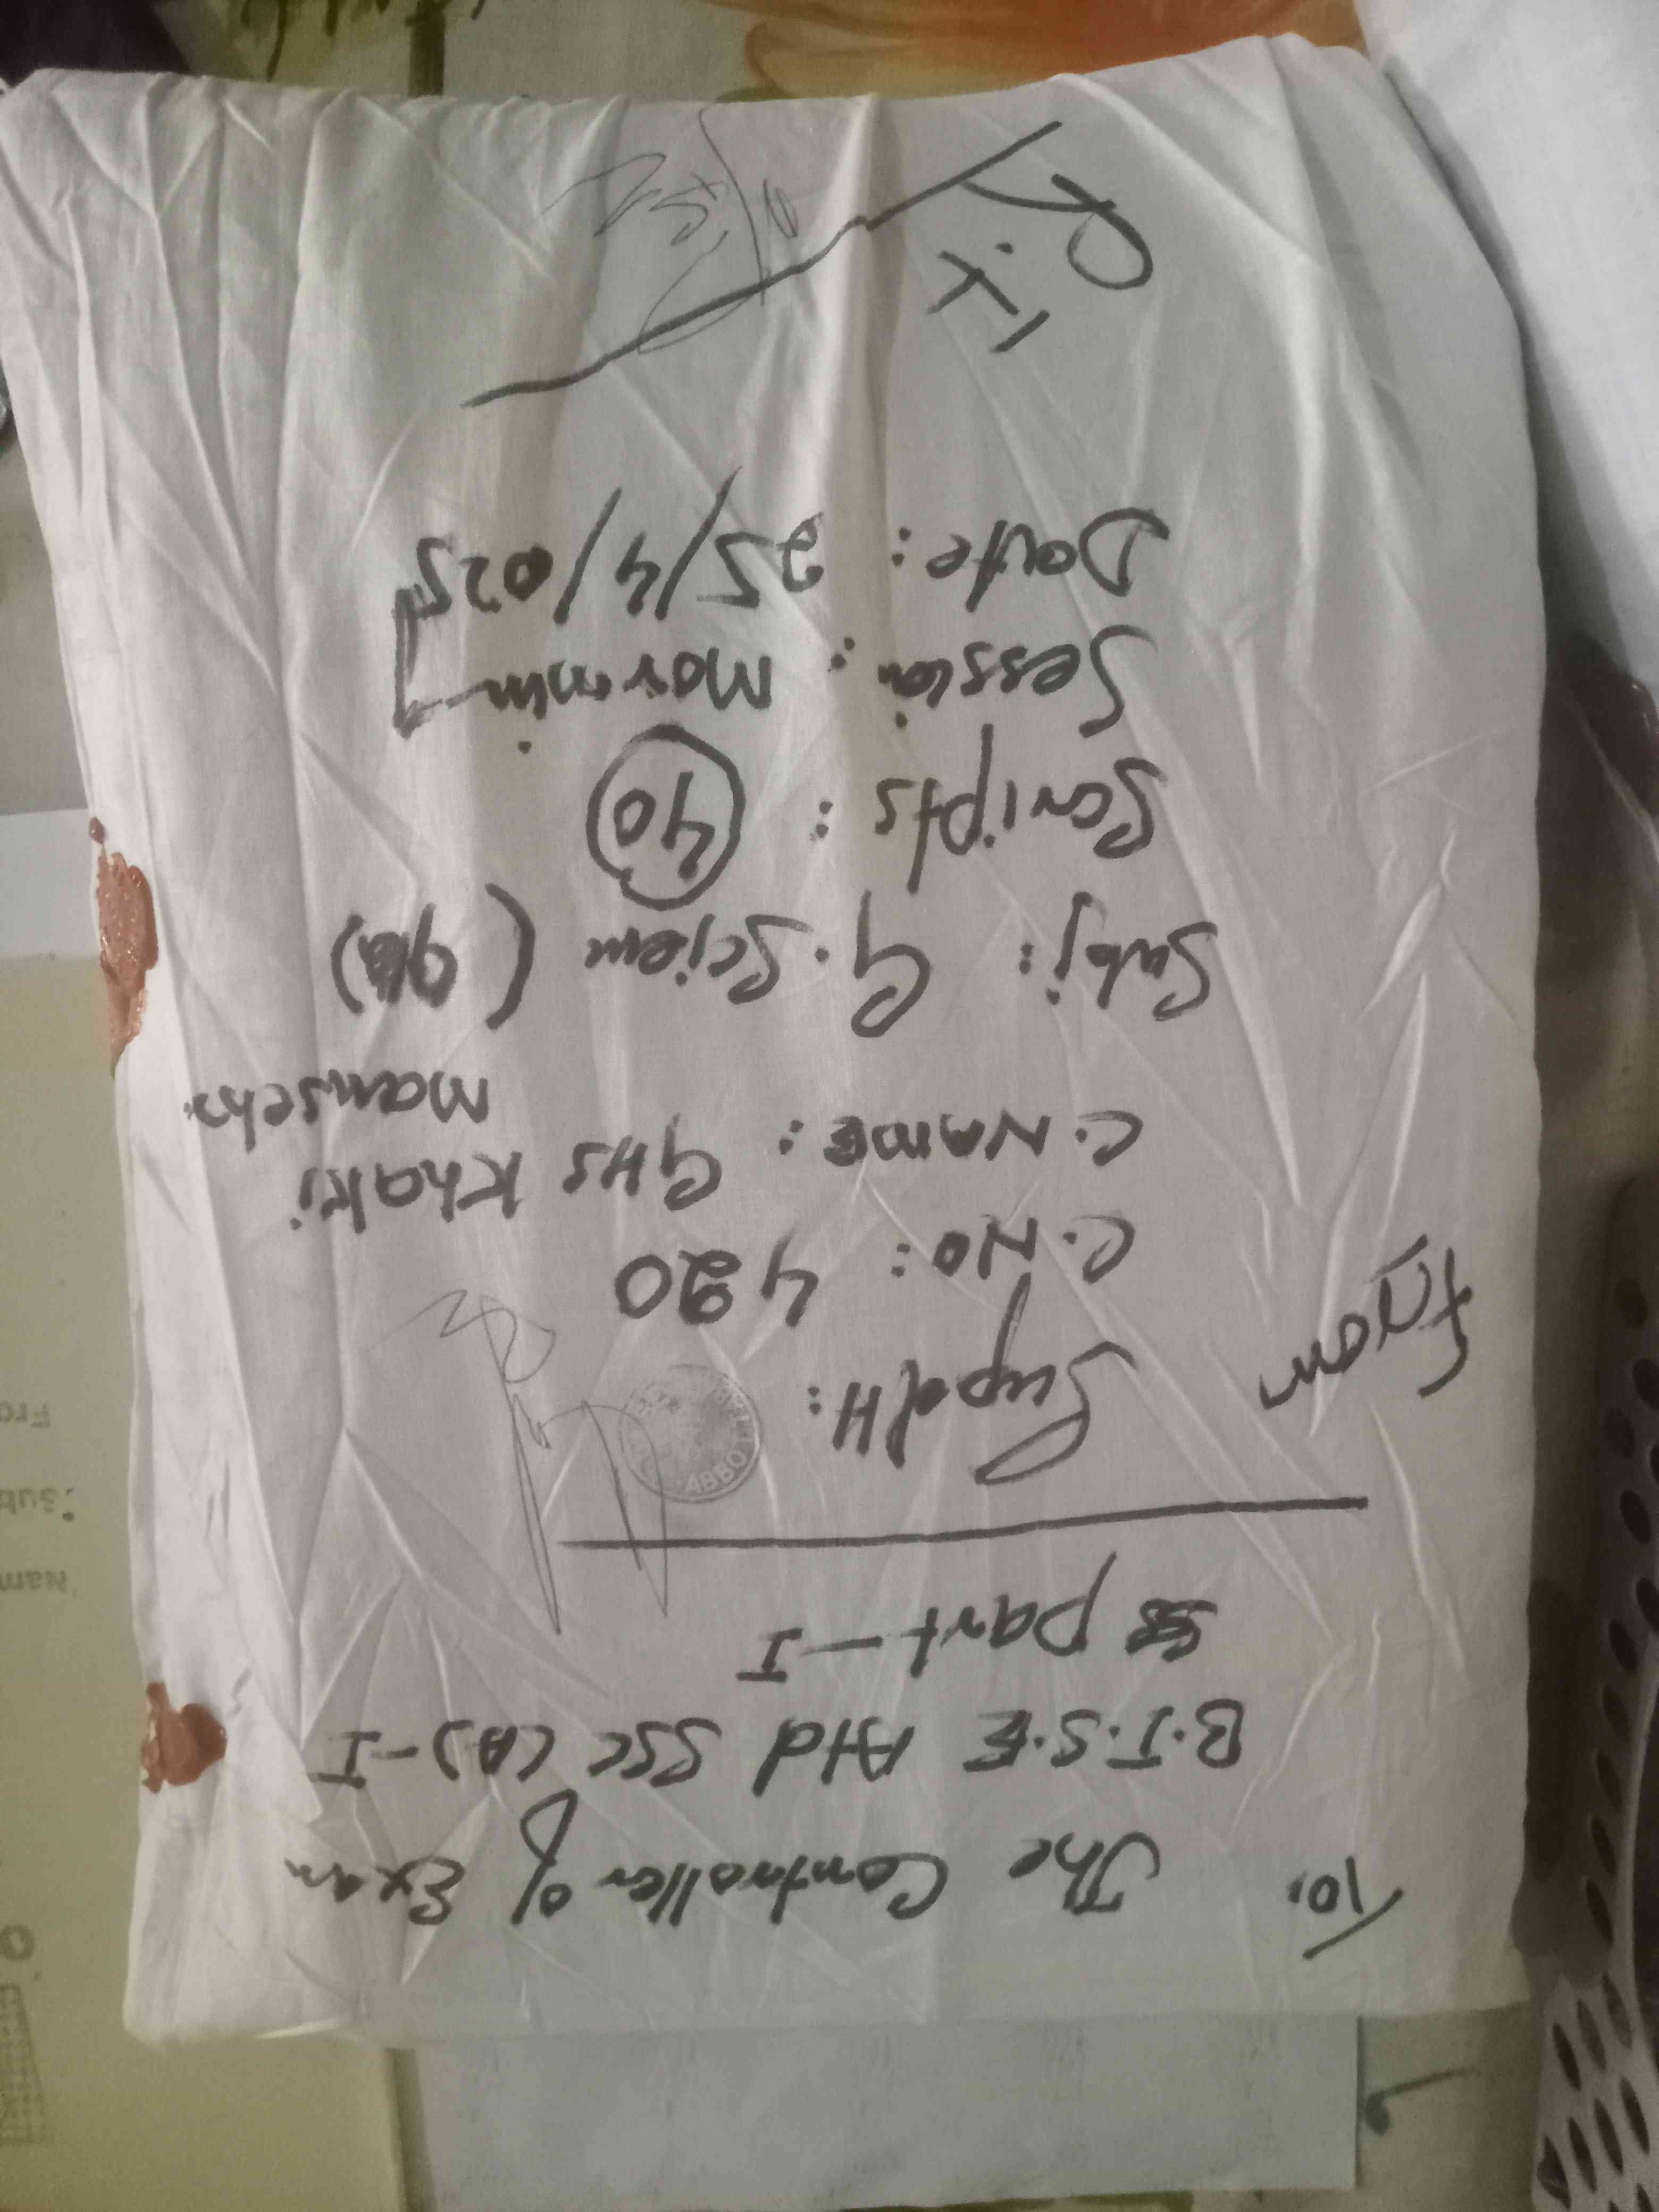 To,
The Controller of Exam
B.I.S.E Atd SSC (A)-I
Part-I
From
Supdtt:
ABBOTT
C.No: 420
C.NAME: GHS Khaki
Mansehra
Subj: G.Science (9th)
Scripts: 40
Session: Morning
Date: 25/4/025
R.I
From
Sub:
Nam